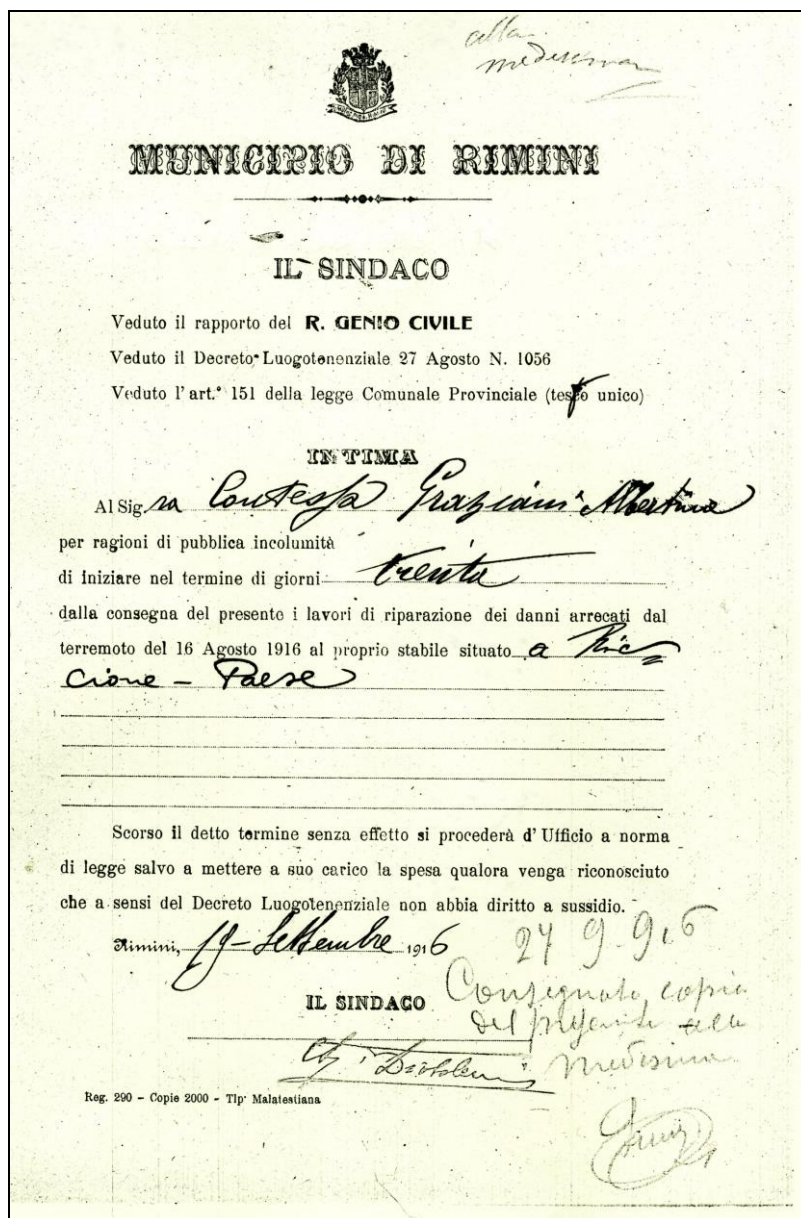 alla
medesima
MUNICIPIO DI RIMINI
IL SINDACO
Veduto il rapporto del R. GENIO CIVILE
Veduto il Decreto Luogotenenziale 27 Agosto N. 1056
Veduto l'art.° 151 della legge Comunale Provinciale (testo unico)
INTIMA
Al Sig.ra Contessa Graziani Albertina
per ragioni di pubblica incolumità
di iniziare nel termine di giorni trenta
dalla consegna del presente i lavori di riparazione dei danni arrecati dal
terremoto del 16 Agosto 1916 al proprio stabile situato a Ric=
cione - Paese
Scorso il detto termine senza effetto si procederà d'Ufficio a norma
di legge salvo a mettere a suo carico la spesa qualora venga riconosciuto
che a sensi del Decreto Luogotenenziale non abbia diritto a sussidio.
Rimini, 19 - Settembre 1916
27 9 - 916
IL SINDACO
Consegnata copia
del presente alla
medesima
Reg. 290 - Copie 2000 - Tip. Malatestiana